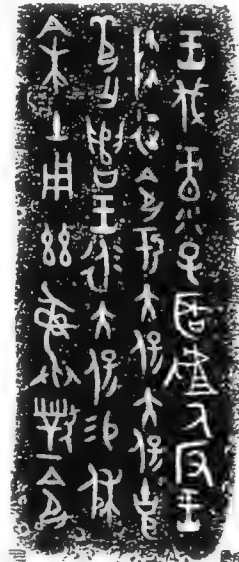 王伐彔子𦔻𠭯厥反王
降征令于大保大保克
芍亡遣王永大保易休
余土用茲彝對令